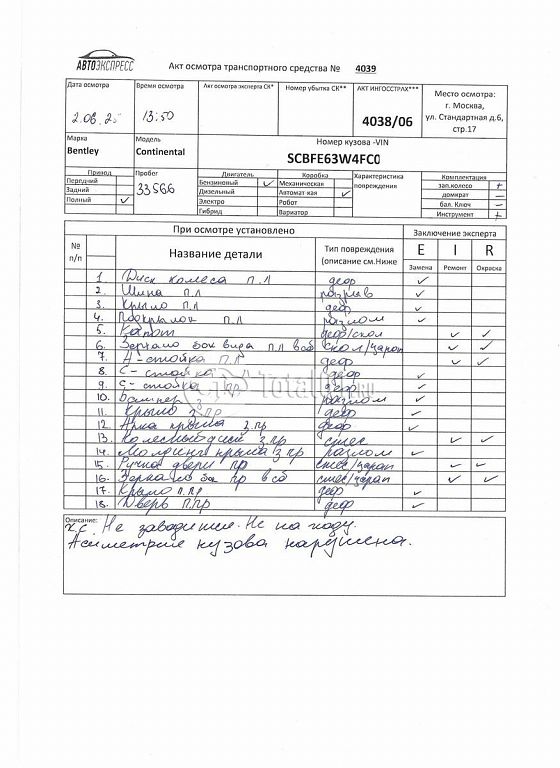 АВТОЭКСПРЕСС
Акт осмотра транспортного средства № 4039
Дата осмотра Время осмотра Акт осмотра эксперта СК* Номер убытка СК** АКТ ИНГОССТРАХ*** Место осмотра:
г. Москва,
ул. Стандартная д.6,
стр.17
13:50 4038/06
Марка Модель Номер кузова -VIN
Bentley Continental SCBFE63W4FC0
Привод Пробег Двигатель Коробка Характеристика повреждения Комплектация
Передний Бензиновый ✓ Механическая зап.колесо +
Задний 33566 Дизельный Автомат кая ✓ домкрат –
Полный ✓ Электро Робот бал. Ключ –
Гибрид Вариатор Инструмент +
При осмотре установлено Заключение эксперта
№ п/п Название детали Тип повреждения (описание см.Ниже E I R
Замена Ремонт Окраска
1 Диск колеса п.л деф ✓
2 Шина п.л разрыв ✓
3. Крыло п.л деф ✓
4. Подкрылок п.л разлом ✓
5. Капот деф/скол ✓ ✓
6. Зеркало бок вида п.л в сб скол/царап ✓ ✓
7. А-стойка п.л деф ✓ ✓
8. С-стойка деф ✓
9. С-стойка пр деф ✓
10. Бампер з разлом ✓
11. Крыло з.пр деф ✓
12 Арка крыла з.пр деф ✓
13. Колесный диск з.пр стес ✓ ✓
14. Молдинг крыла з пр разлом ✓
15. Ручка двери пр стес/царап ✓ ✓
16. Зеркало бок пр в сб стес/царап ✓ ✓
17. Крыло п.пр деф ✓
18. Дверь п.пр деф ✓
Total
Описание:
Не заводится. Не на ходу.
Асиметрия кузова нарушена.